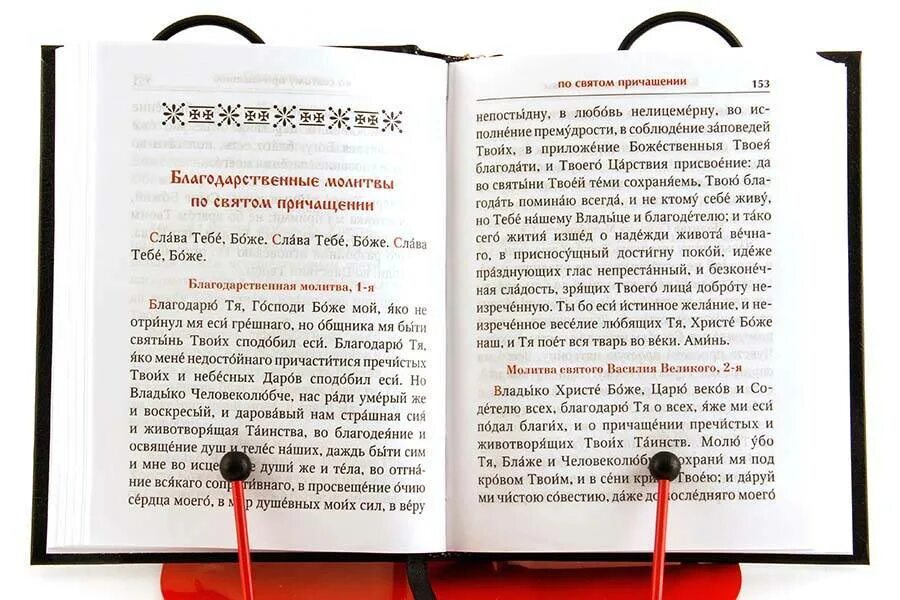 Благодарственные молитвы
по святом причащении
Сла́ва Тебе́, Бо́же. Сла́ва Тебе́, Бо́же. Сла́ва
Тебе́, Бо́же.
Благодарственная молитва, 1-я
Благодарю́ Тя, Го́споди Бо́же мой, я́ко не
отри́нул мя еси́ гре́шнаго, но о́бщника мя бы́ти
святы́нь Твои́х сподо́бил еси́. Благодарю́ Тя,
я́ко мене́ недосто́йнаго причасти́тися пречи́стых
Твои́х и небе́сных Даро́в сподо́бил еси́. Но
Влады́ко Человеколю́бче, нас ра́ди уме́рый же
и воскресы́й, и дарова́вый нам стра́шная сия́
и животворя́щая Та́инства, во благодея́ние и
освяще́ние душ и теле́с на́ших, даждь бы́ти сим
и мне во души́ же и те́ла, во отгна́-
ние вся́каго во просвеще́ние о́чию
се́рдца моего́, в душе́вных мои́х сил, в ве́ру
по святом причащении 153
непосты́дну, в любо́вь нелицеме́рну, во ис-
полне́ние прему́дрости, в соблюде́ние за́поведей
Твои́х, в приложе́ние Боже́ственныя Твоея́
благода́ти, и Твоего́ Ца́рствия присвое́ние: да
во святы́ни Твое́й те́ми сохраня́емь, Твою́ бла-
года́ть помина́ю всегда́, и не ктому́ себе́ живу́,
но Тебе́ на́шему Влады́це и благоде́телю; и та́ко
сего́ жития́ изше́д о наде́жди живота́ ве́чна-
го, в присносу́щный дости́гну поко́й, иде́же
пра́зднующих глас непреста́нный, и безконе́ч-
ная сла́дость, зря́щих Твоего́ лица́ добро́ту не-
изрече́нную. Ты бо еси́ и́стинное жела́ние, и не-
изрече́нное весе́лие лю́бящих Тя, Христе́ Бо́же
наш, и Тя пое́т вся тварь во ве́ки. Ами́нь.
Молитва святого Василия Великого, 2-я
Влады́ко Христе́ Бо́же, Царю́ веко́в и Со-
де́телю всех, благодарю́ Тя о всех, я́же ми еси́
по́дал благи́х, и о причаще́нии пречи́стых и
животворя́щих Твои́х Та́инств. Молю́ у́бо
Тя, Бла́же и сохрани́ мя под
кро́вом Твои́м, и в се́ни Твое́ю; и да́руй
ми чи́стою со́вестию, да́же до после́дняго моего́